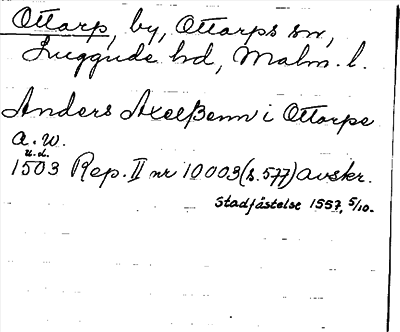 Ottarp, by, Ottarps sn,
Luggude hd, Malm. l.
Anders Axelßenn i Ottorpe
a. w.
u.d.
1503 Rep. II nr 10003 (s. 577) avskr.
Stadfästelse 1557, 5/10.